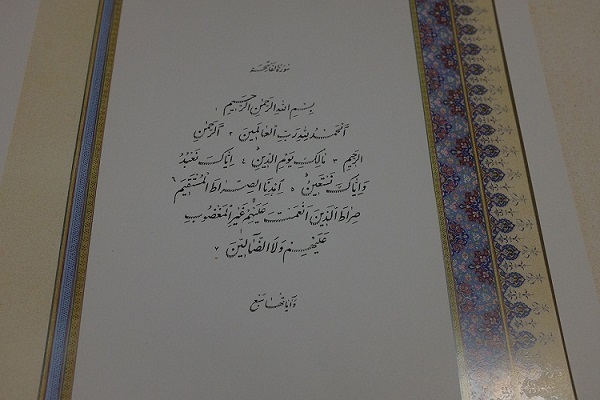 سورة الفاتحة
بِسْمِ اللهِ الرَّحْمٰنِ الرَّحِيمِ ١
اَلْحَمْدُ لِلّٰهِ رَبِّ الْعَالَمِينَ ٢ اَلرَّحْمٰنِ
الرَّحِيمِ ٣ مَالِكِ يَوْمِ الدِّينِ ٤ اِيَّاكَ نَعْبُدُ
وَاِيَّاكَ نَسْتَعِينُ ٥ اِهْدِنَا الصِّرَاطَ الْمُسْتَقِيمَ ٦
صِرَاطَ الَّذِينَ اَنْعَمْتَ عَلَيْهِمْ غَيْرِ الْمَغْضُوبِ
عَلَيْهِمْ وَلَا الضَّالِّينَ ٧
وآياتها سبع